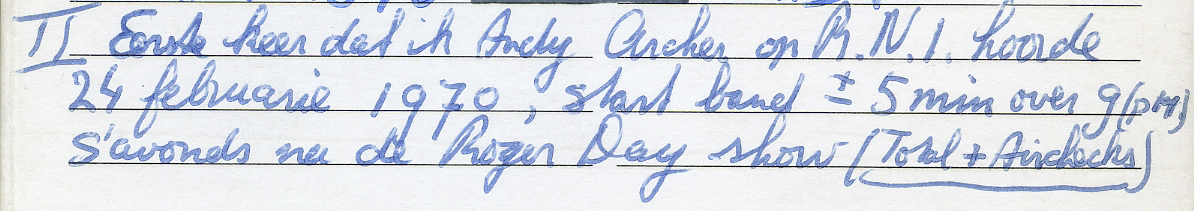 II Eerste keer dat ik Andy Archer op R.N.I. hoorde
24 februarie 1970, start band ± 5 min over 9 (PM)
s'avonds na de Roger Day show (Total + Airchecks)